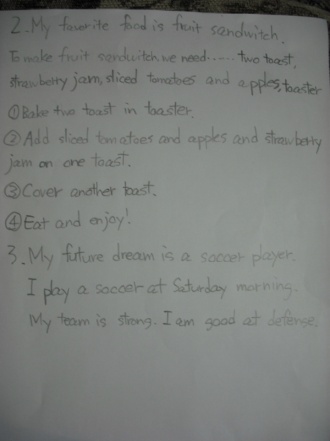 2. My favorite food is fruit sandwitch.
To make fruit sandwitch we need..... two toast,
strawberry jam, sliced tomatoes and apples, toaster
① Bake two toast in toaster.
② Add sliced tomatoes and apples and strawberry
jam on one toast.
③ Cover another toast.
④ Eat and enjoy!
3. My future dream is a soccer player.
I play a soccer at Saturday morning.
My team is strong. I am good at defense.